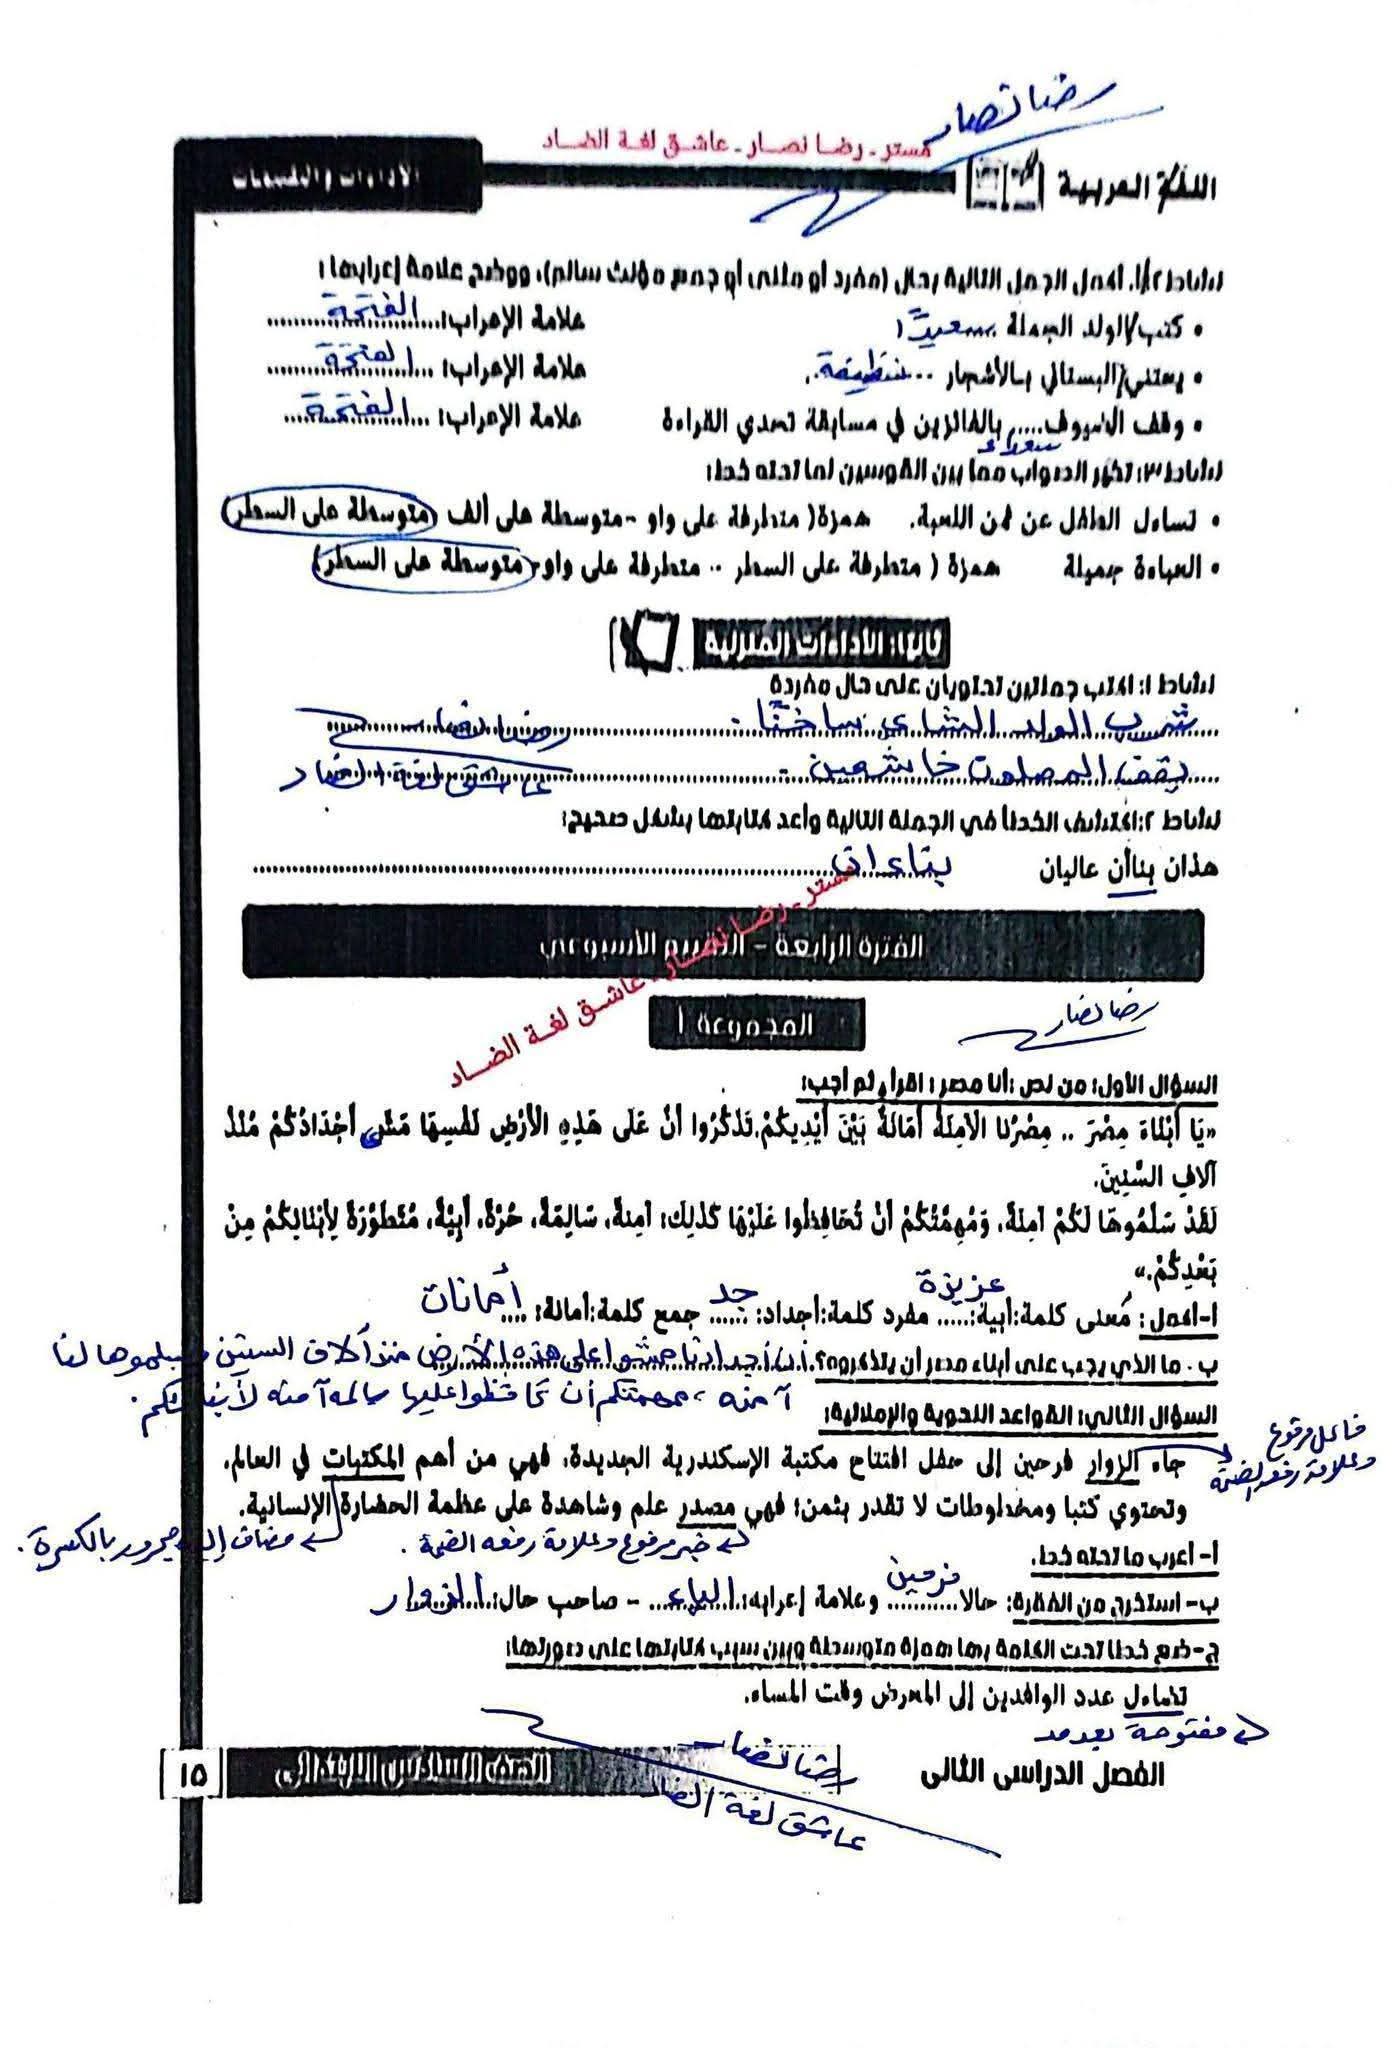 رضا نصار
مستر - رضا نصار - عاشق لغة الضاد
اللغة العربية
الأداءات والتقييمات
نشاط ٢/أ. أكمل الجمل التالية بحال (مفرد أو مثنى أو جمع مؤنث سالم)، ووضح علامة إعرابها:
• كتب/الولد الجملة سعيدًا علامة الإعراب: الفتحة
• يعتني/البستاني بالأشجار .. نظيفة. علامة الإعراب: الفتحة
• وقف الضيوف..... بالفائزين في مسابقة تحدي القراءة علامة الإعراب: الفتحة
سعداء
نشاط ٣: تخير الصواب مما بين القوسين لما تحته خط:
• تساءل الطفل عن ثمن اللعبة. همزة( متطرفة على واو - متوسطة على ألف - متوسطة على السطر)
• العباءة جميلة همزة ( متطرفة على السطر .. متطرفة على واو- متوسطة على السطر)
ثانيا: الأداءات المنزلية
نشاط ١: اكتب جملتين تحتويان على حال مفردة
شرب الولد الشاي ساخنًا. رضا نصار
يقف المصلون خاشعين. عاشق لغة الضاد
نشاط ٢: اكتشف الخطأ في الجملة التالية وأعد كتابتها بشكل صحيح:
هذان بناأن عاليان بناءان
مستر - رضا نصار - عاشق لغة الضاد
الفترة الرابعة - التقييم الأسبوعي
المجموعة ١
رضا نصار
السؤال الأول: من نص :أنا مصر: اقرأ، ثم أجب:
«يَا أَبْنَاءَ مِصْرَ .. مِصْرُنَا الْآمِنَةُ أَمَانَةٌ بَيْنَ أَيْدِيكُمْ.تَذَكَّرُوا أَنَّ عَلَى هَذِهِ الْأَرْضِ نَفْسِهَا مَشَى أَجْدَادُكُمْ مُنْذُ
آلافِ السِّنِينَ.
لَقَدْ سَلَّمُوهَا لَكُمْ آمِنَةً، وَمُهِمَّتُكُمْ أَنْ تُحَافِظُوا عَلَيْهَا كَذَلِكَ؛ آمِنَةً، سَالِمَةً، حُرَّةً، أَبِيَّةً، مُتَطَوِّرَةً لِأَبْنَائِكُمْ مِنْ
بَعْدِكُمْ.»
أ-أكمل: مُعنى كلمة:أبية: عزيزة مفرد كلمة:أجداد: جد جمع كلمة:أمانة: أمانات
ب. ما الذي يجب على أبناء مصر أن يتذكروه؟ أن أجدادنا مشوا على هذه الأرض منذ آلاف السنين وسلموها لنا
آمنة ، مهمتكم أن تحافظوا عليها سالمة آمنة لأبنائكم.
السؤال الثاني: القواعد النحوية والإملائية:
جاء الزوار فرحين إلى حفل افتتاح مكتبة الإسكندرية الجديدة، فهي من أهم المكتبات في العالم،
فاعل مرفوع
وعلامة رفعه الضمة
وتحتوي كتبا ومخطوطات لا تقدر بثمن؛ فهي مصدر علم وشاهدة على عظمة الحضارة الإنسانية.
خبر مرفوع وعلامة رفعه الضمة.
مضاف إليه مجرور بالكسرة.
أ- أعرب ما تحته خط.
ب- استخرج من الفقرة: حالا فرحين وعلامة إعرابه: الياء - صاحب حال: الزوار
ج-ضع خطا تحت الكلمة بها همزة متوسطة وبين سبب كتابتها على صورتها:
تضاءل عدد الوافدين إلى المعرض وقت المساء.
مفتوحة بعد مد
الفصل الدراسى الثانى
رضا نصار
الصف السادس الابتدائى
١٥
عاشق لغة الضاد